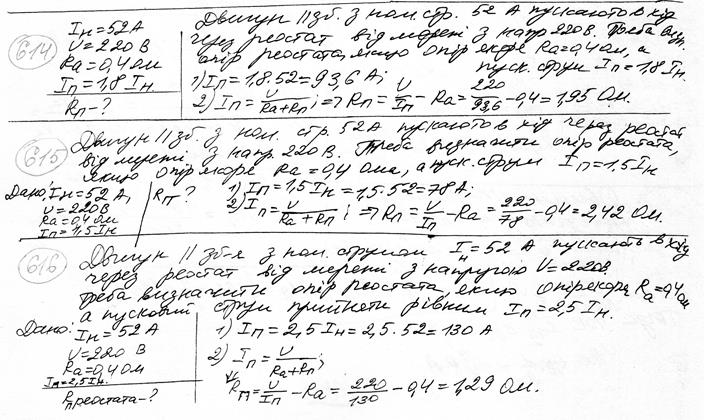 614
Iн=52А
U=220В
Ra=0,4Ом
Iп=1,8Iн
Rп-?
Двигун II зб. з ном. стр. 52 А пускают в хід
через реостат від мережі з напр 220В. Треба визн.
опір реостата, якщо опір якоре Ra=0,4ом, а
пуск. струм Iп=1,8Iн.
1) Iп=1,8.52=93,6 А;
2) Iп=U/(Ra+Rп); ⇒ Rп=U/Iп - Ra=220/93,6 -0,4=1,95 Ом.
615
Двигун II зб. з ном. стр. 52А пускають в хід через реостат
від мережі з напр. 220В. Треба визначити опір реостата,
якщо опір якоре Ra=0,4 Ома, а пуск. струм Iп=1,5Iн
Дано: Iн=52А,
U=220В
Ra=0,4 Ом
Iп=1,5Iн
Rп-?
1) Iп=1,5Iн=1,5.52=78А;
2) Iп=U/(Ra+Rп); ⇒ Rп=U/Iп - Ra=220/78 -0,4=2,42 Ом.
616
Двигун II зб-я з ном. струмом Iн=52 А пускають в хід
через реостат від мережі з напругою U=220В.
Треба визначити опір реостата, якщо опір якоря Ra=0,4ом
а пусковий струм прийняти рівним Iп=2,5Iн.
Дано:
Iн=52А
U=220 В
Ra=0,4Ом
Iп=2,5Iн.
Rп реостата-?
1) Iп=2,5Iн=2,5.52=130 А
2) Iп=U/(Ra+Rп);
Rп=U/Iп - Ra=220/130 -0,4=1,29 Ом.